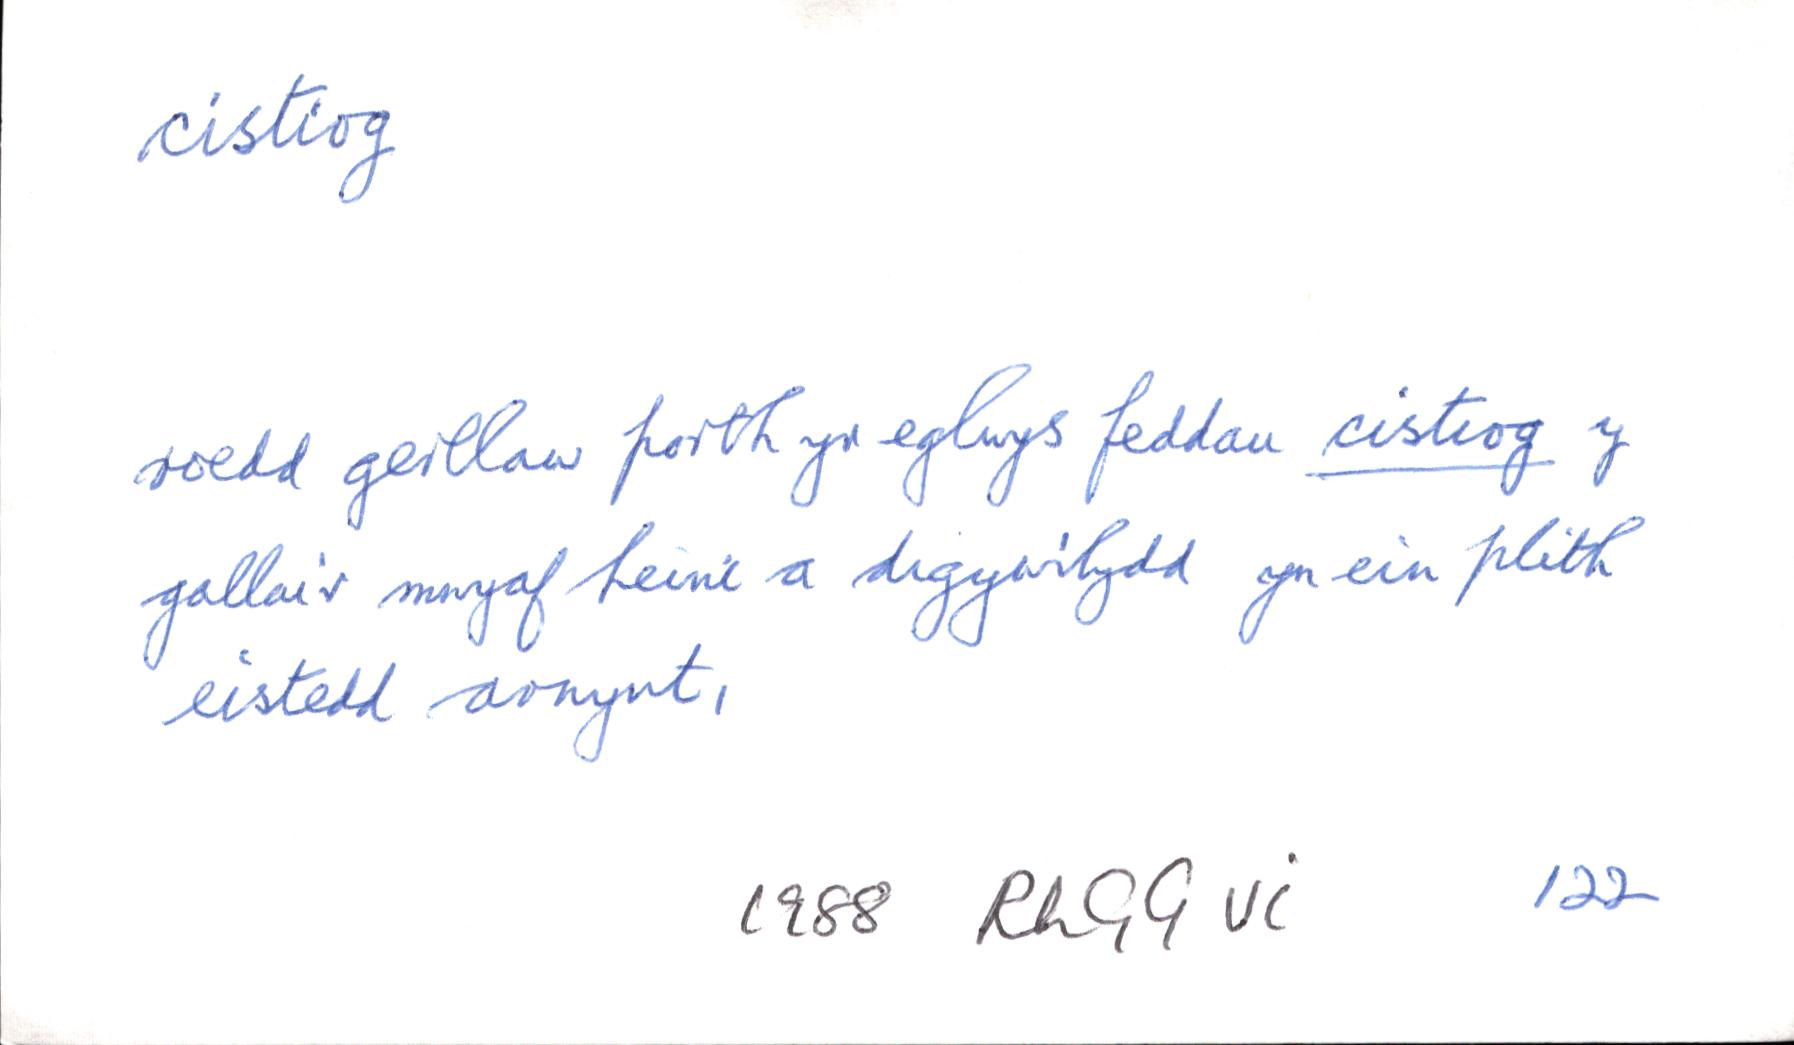 cistiog
roedd gerllaw porth yr eglwys feddau cistiog y
gallai'r mwyaf heini a digywilydd yn ein plith
eistedd arnynt,
1988 RhGG vi 122